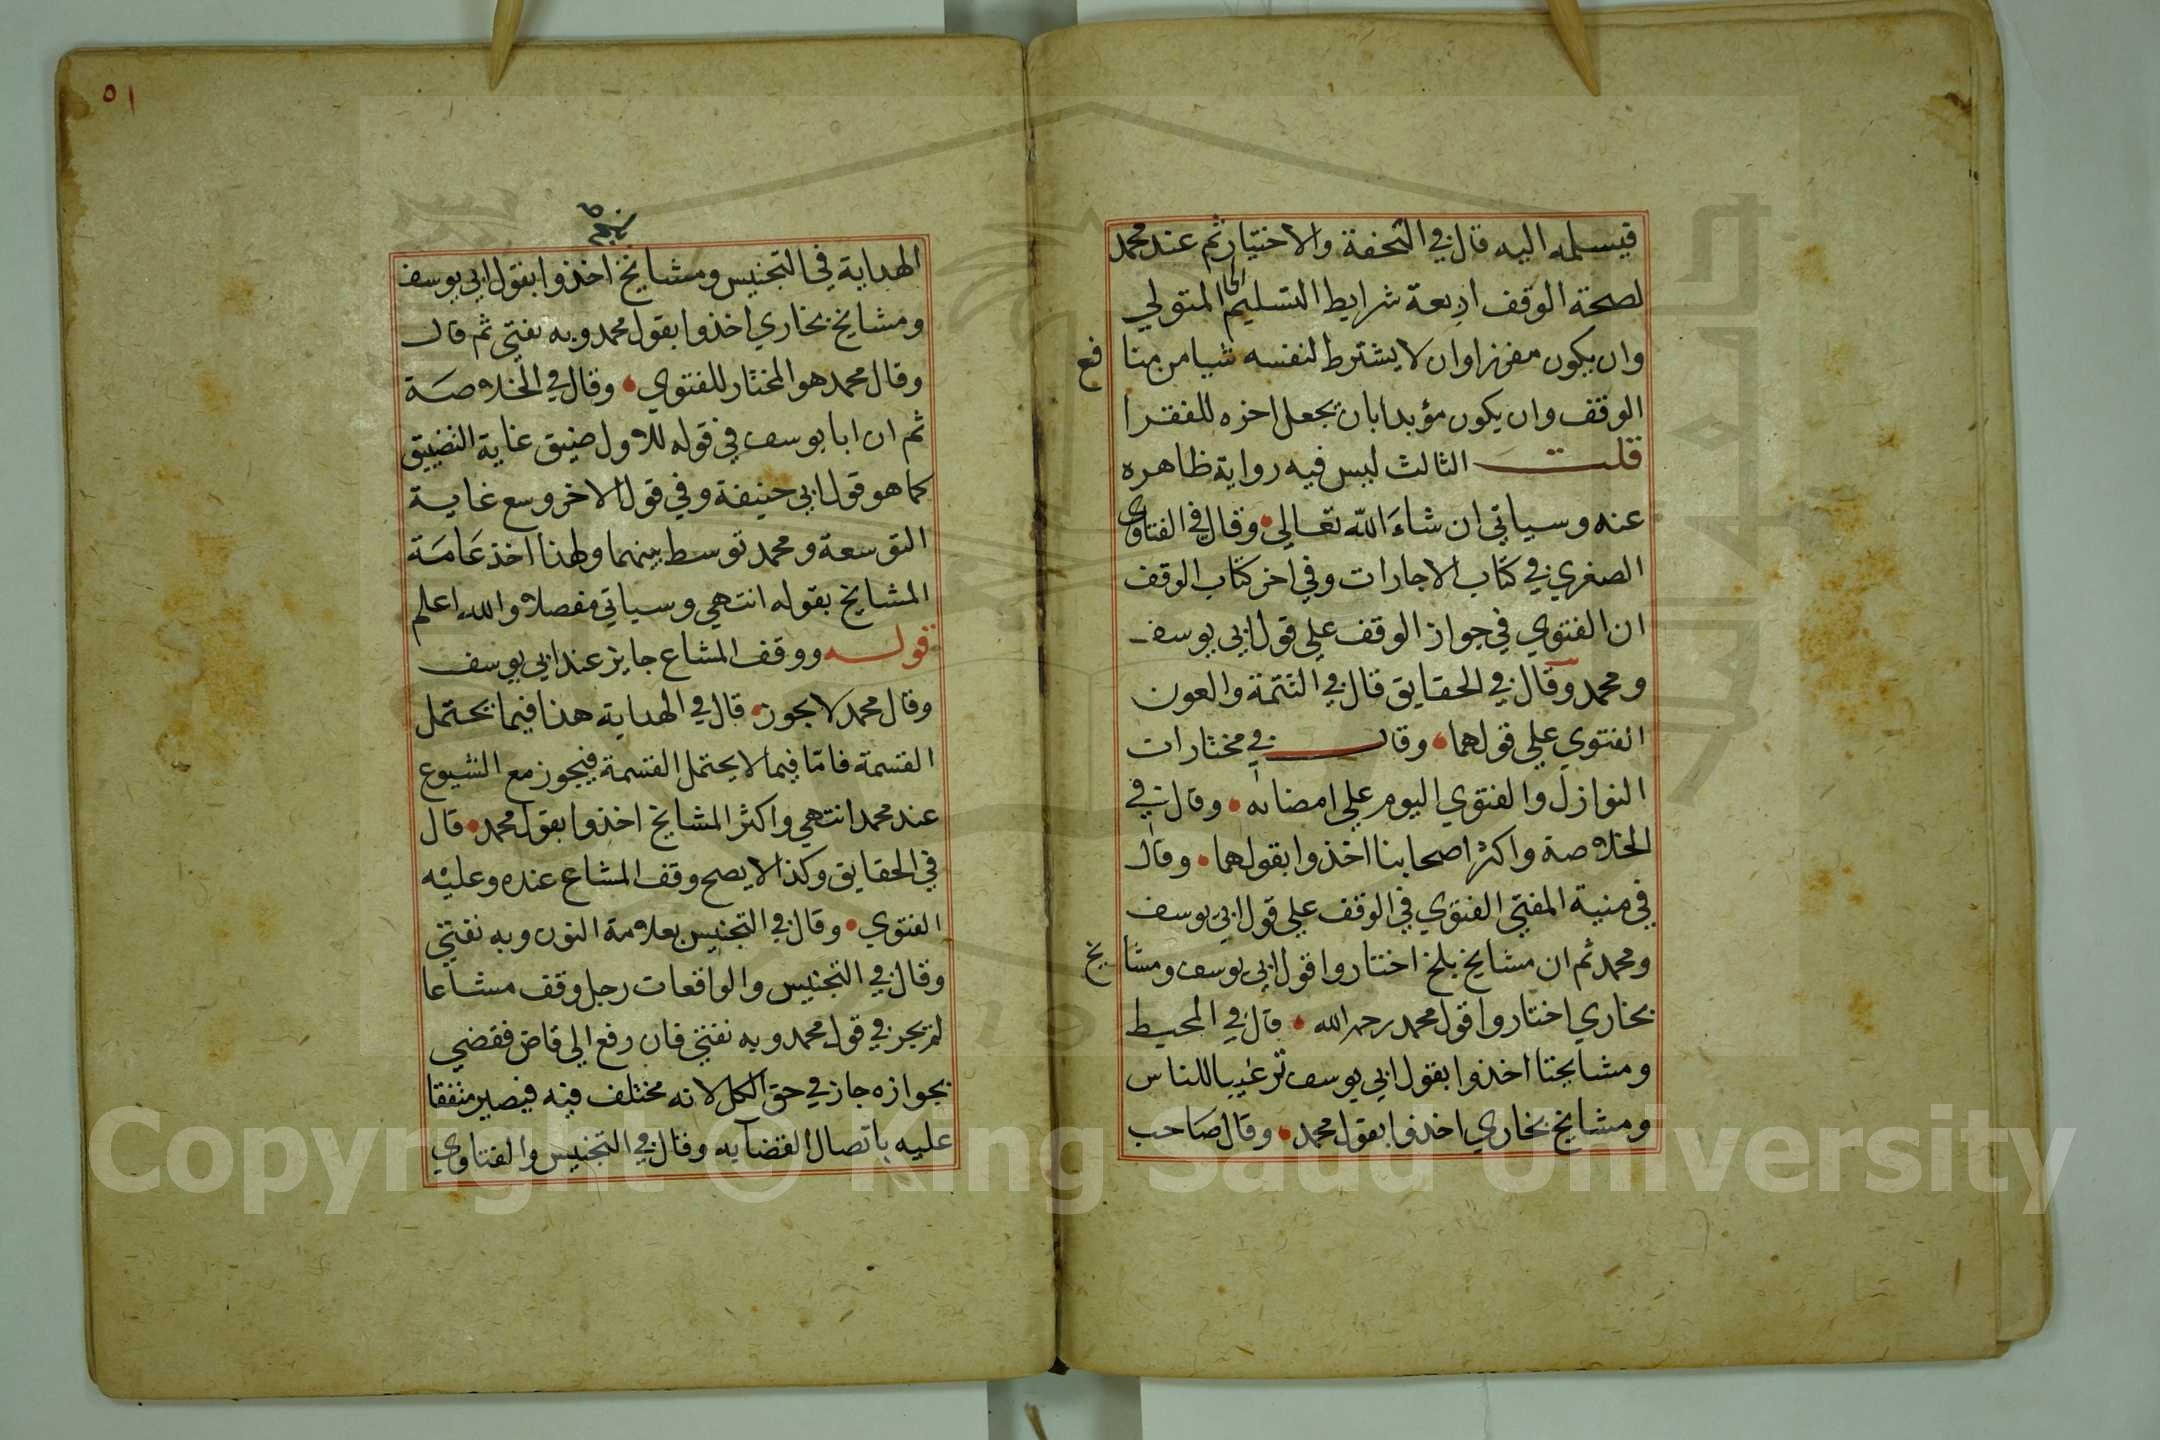 فيسلمه اليه قال في التحفة والاختيار ثم عند محمد
لصحة الوقف اربعة شرايط التسليم الى المتولي
وان يكون مفرزا وان لا يشترط لنفسه شيا من منافع
الوقف وان يكون مؤبدا بان يجعل اخره للفقرا
قلت الثالث ليس فيه رواية ظاهره
عنه وسياتي ان شاء الله تعالي وقال في الفتاوى
الصغري في كتاب الاجارات وفي اخر كتاب الوقف
ان الفتوي في جواز الوقف علي قول ابي يوسف
ومحمد وقال في الحقايق قال في التتمة والعون
الفتوي علي قولهما وقال في مختارات
النوازل والفتوي اليوم علي امضائه وقال في
الخلاصة واكثر اصحابنا اخذوا بقولهما وقال
في منية المفتي الفتوي في الوقف علي قول ابي يوسف
ومحمد ثم ان مشايخ بلخ اختاروا قول ابي يوسف ومشايخ
بخاري اختاروا قول محمد رحمه الله قال في المحيط
ومشايخنا اخذوا بقول ابي يوسف ترغيبا للناس
ومشايخ بخاري اخذوا بقول محمد وقال صاحب
٥١
الهداية في التجنيس ومشايخ اخذوا بقول ابي يوسف
ومشايخ بخاري اخذوا بقول محمد وبه نفتي ثم قال
وقال محمد هو المختار للفتوي وقال في الخلاصة
ثم ان ابا يوسف في قوله للاول ضيق غاية التضييق
كما هو قول ابي حنيفة وفي قول الاخر وسع غاية
التوسعة ومحمد توسط بينهما ولهذا اخذ عامة
المشايخ بقوله انتهي وسياتي مفصلا والله اعلم
قوله ووقف المشاع جايز عند ابي يوسف
وقال محمد لا يجوز قال في الهداية هذا فيما يحتمل
القسمة فاما فيما لا يحتمل القسمة فيجوز مع الشيوع
عند محمد انتهي واكثر المشايخ اخذوا بقول محمد قال
في الحقايق وكذا لا يصح وقف المشاع عنده وعليه
الفتوي وقال في التجنيس بعلامة النون وبه نفتي
وقال في التجنيس والواقعات رجل وقف مشاعا
لم يجز في قول محمد وبه نفتي فان رفع الي قاض فقضي
بجوازه جاز في حق الكل لانه مختلف فيه فيصير متفقا
عليه باتصال القضا به وقال في التجنيس والفتاوي
Copyright © King Saud University